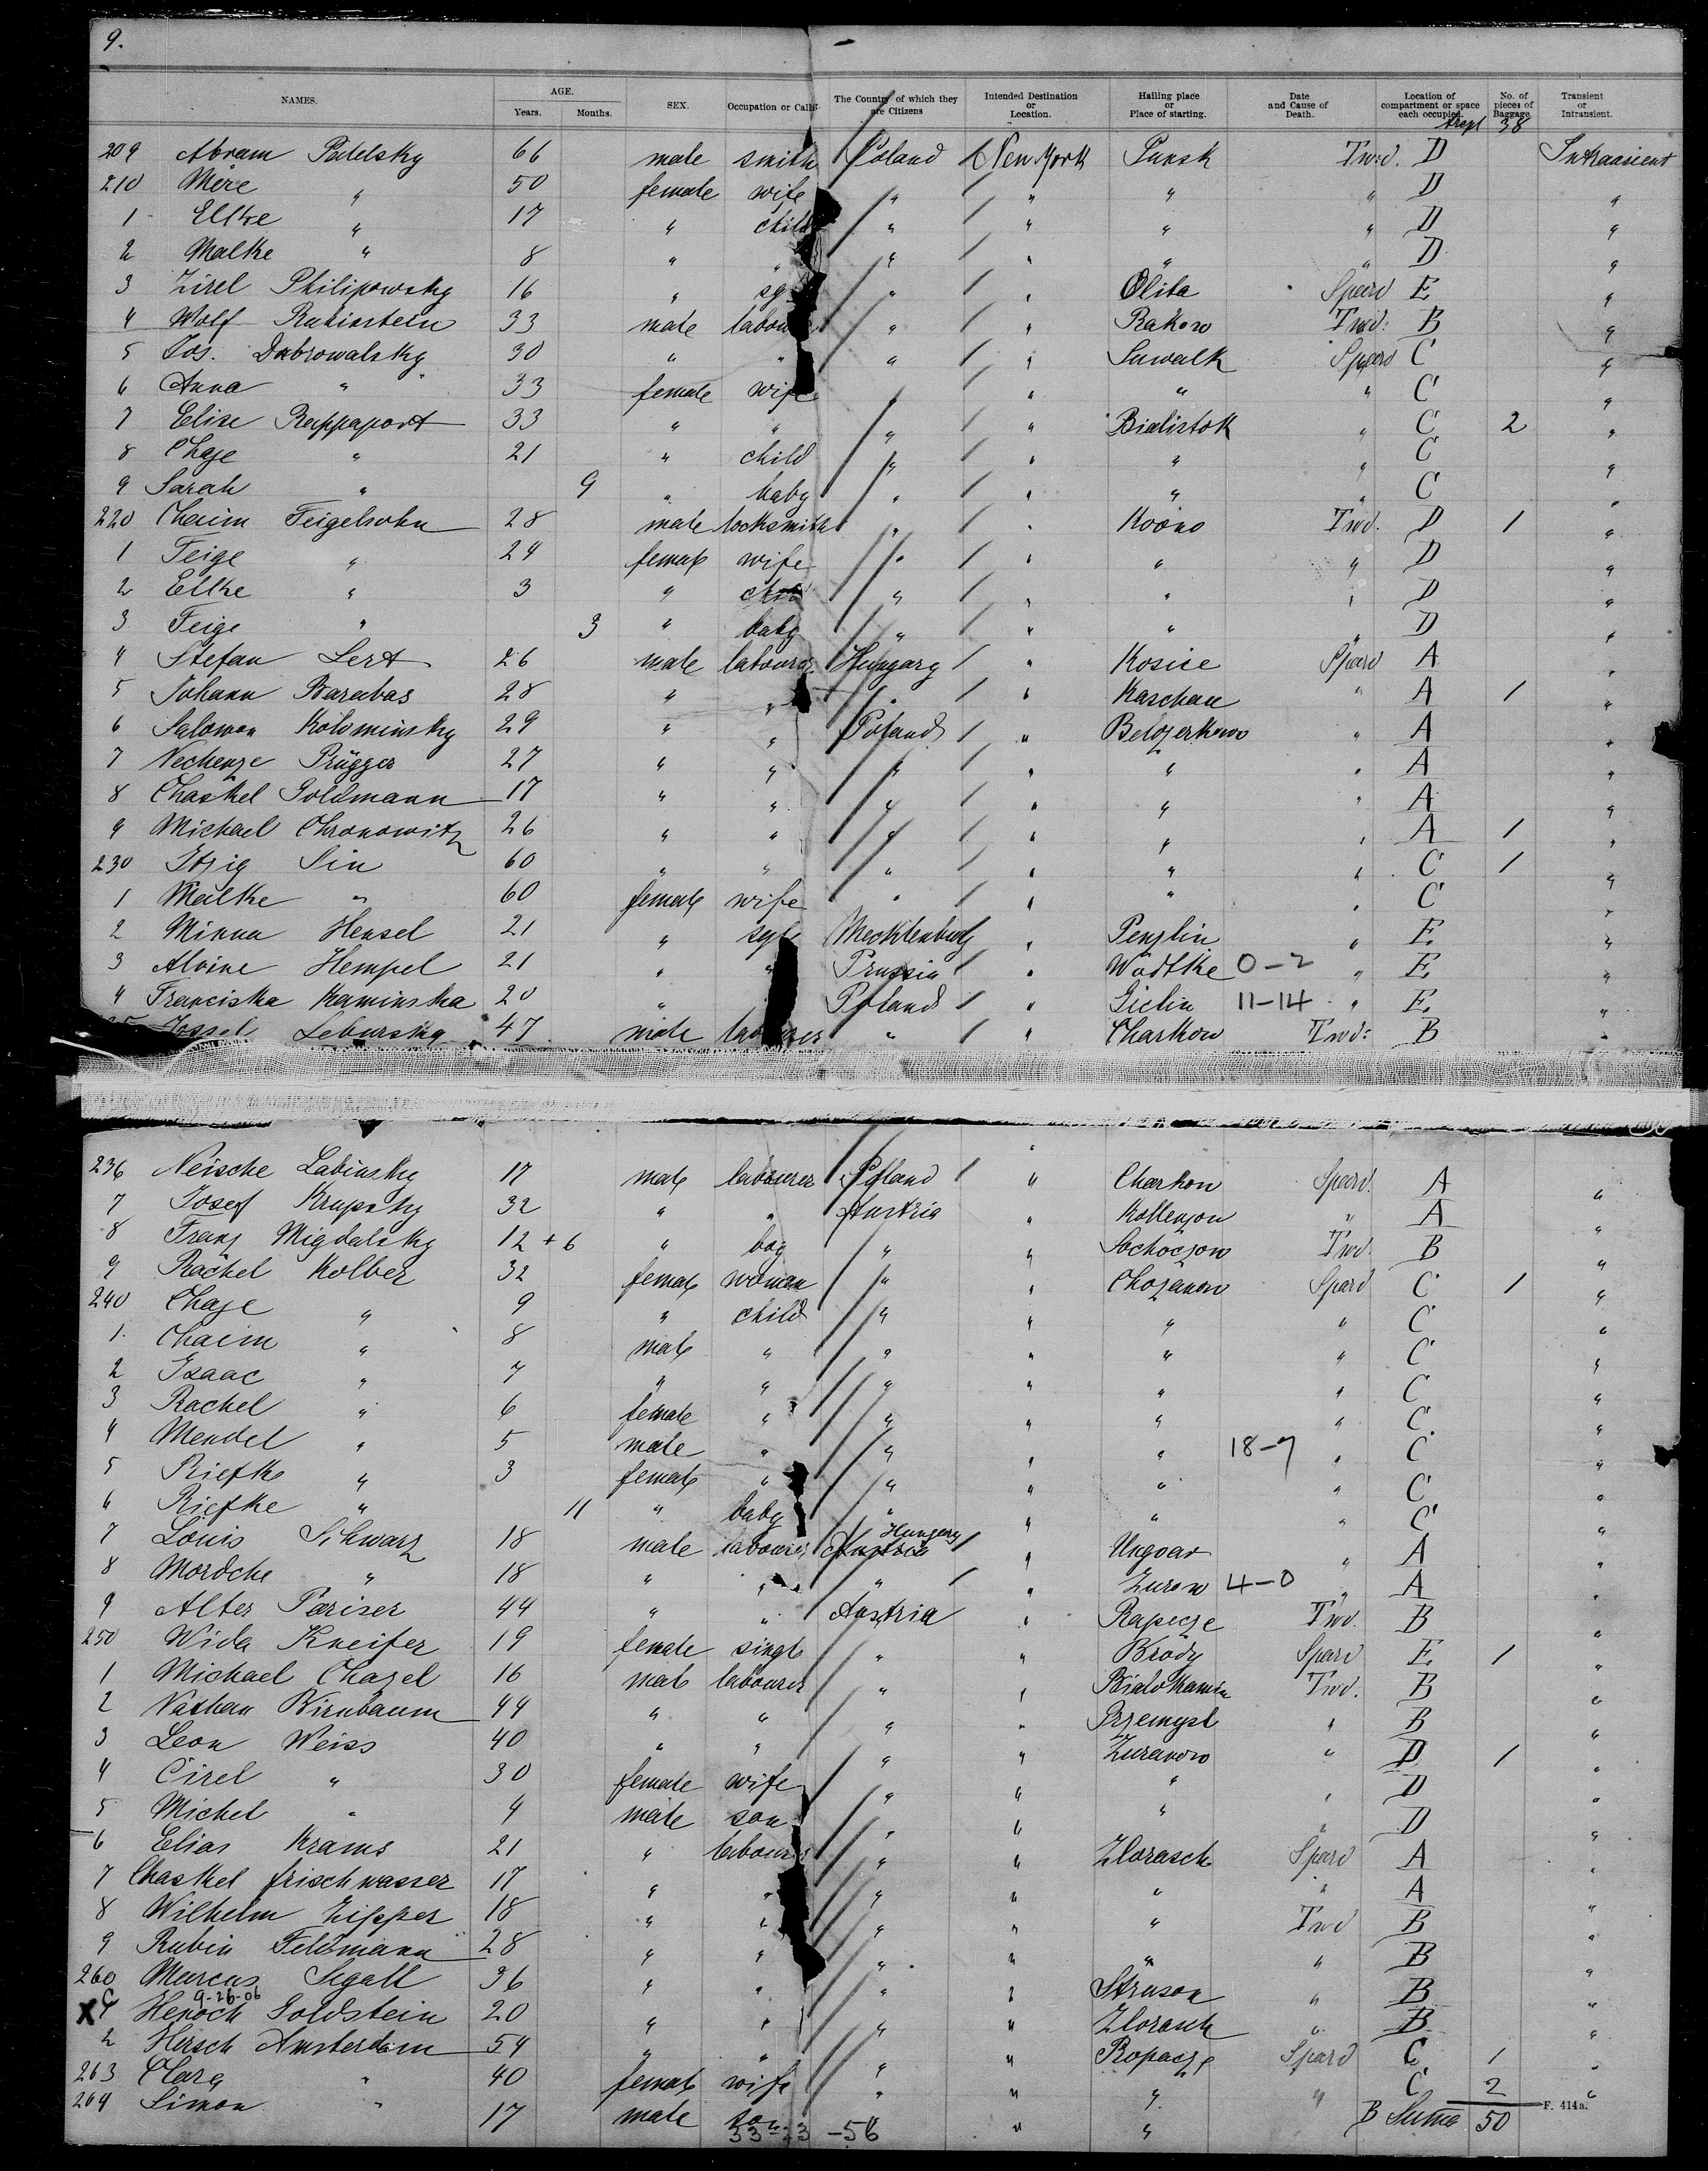 9.
NAMES. AGE. Years. Months. SEX. Occupation or Calli The Country of which they are Citizens Intended Destination or Location. Hailing place or Place of starting. Date and Cause of Death. Location of compartment or space each occupied. No. of pieces of Baggage. Transient or Intransient.
38
209 Abram Padelsky 66 male smith Poland New York Punsk Twd. D Intransient
210 Mere " 50 female wife " " " " D "
1 Elke " 17 " child " " " " D "
2 Malke " 8 " " " " " " D "
3 Zirel Philipowsky 16 " sg " " Olita Speerd E "
4 Wolf Rubinstein 33 male labou " " Rakow Twd: B "
5 Jos. Dabrowalsky 30 " " " " Suwalk Speerd C "
6 Anna " 33 female wife " " " " C "
7 Elise Rappaport 33 " " " " Bialistok " C 2 "
8 Chaje " 21 " child " " " " C "
9 Sarah " 9 " baby " " " " C "
220 Chaim Feigelsohn 28 male locksmith " " Kowno Twd. D 1 "
1 Feige " 24 female wife " " " " D "
2 Elke " 3 " child " " " " D "
3 Feige " 3 " baby " " " " D "
4 Stefan Sert 26 male labourer Hungary " Kosice Speerd A "
5 Johann Barabas 28 " " " " Kaschau " A 1 "
6 Salomon Kolominsky 29 " " Poland " Belozerkowo " A "
7 Nechenze Prügger 27 " " " " " " A "
8 Chaskel Goldmann 17 " " " " " " A "
9 Michael Chronowitz 26 " " " " " " A 1 "
230 Itzig Sin 60 " " " " " " C 1 "
1 Malke " 60 female wife " " " " C "
2 Minna Hensel 21 " sgl Mecklenburg " Penzlin " E "
3 Alvine Hempel 21 " " Prussia " Wodtke 0-2 " E "
4 Franciska Kaminska 20 " Poland " Sielin 11-14 " E "
Jossel Leburska 47 male labourer " " Charkow Twd: B "
236 Neische Labinsky 17 male labourer Poland " Charkow Speerd. A "
7 Josef Krupsky 32 " " Austria " Kollenzon " A "
8 Franz Migdalsky 12 + 6 " boy " " Sochoczow Twd. B "
9 Rachel Kolber 32 female woman " " Chozanow Speerd C 1 "
240 Chaje " 9 " child " " " " C "
1. Chaim " 8 male " " " " " C "
2 Isaac " 7 " " " " " " C "
3 Rachel " 6 female " " " " " C "
4 Mendel " 5 male " " " " 18-9 " C "
5 Riefke " 3 female " " " " " C "
6 Riefke " 11 " baby " " " " C "
7 Louis Schwarz 18 male labourer Austria Hungary " Ungvar " A "
8 Mordche " 18 " " " " Zurow 4-0 " A "
9 Alter Pariser 44 " " Austria " Rapecze Twd. B "
250 Wida Kneifer 19 female single " " Brody Speerd E 1 "
1 Michael Chazel 16 male labourer " " Bialokamin Twd. B "
2 Nathan Birnbaum 44 " " " " Przemysl " B "
3 Leon Weiss 40 " " " " Zuranow " D 1 "
4 Cirel " 30 female wife " " " " D "
5 Michel " 4 male son " " " " D "
6 Elias Krams 21 " labourer " " Zlorasch Speerd A "
7 Chaskel Frischwasser 17 " " " " " " A "
8 Wilhelm Zipper 18 " " " " " Twd B "
9 Rubin Feldmann 28 " " " " " " B "
260 Marcus Segall 36 " " " " Struson " B "
C 9-26-06
X 1 Henoch Goldstein 20 " " " " Zlorasch " B "
2 Hersch Amsterdam 54 " " " " Ropacze Speerd C 1 "
263 Clara " 40 female wife " " " " C 2 "
264 Simon " 17 male son " " B Suma 50
33-23-56
F. 414a.